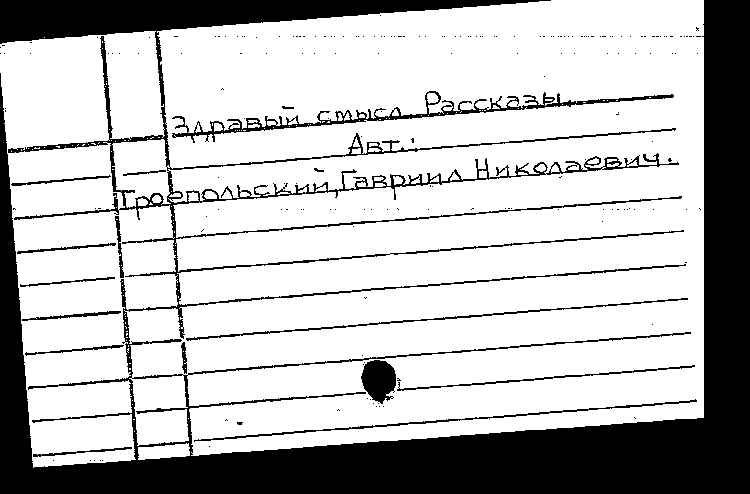 Здравый смысл Рассказы.
Авт.:
Троепольский, Гавриил Николаевич.